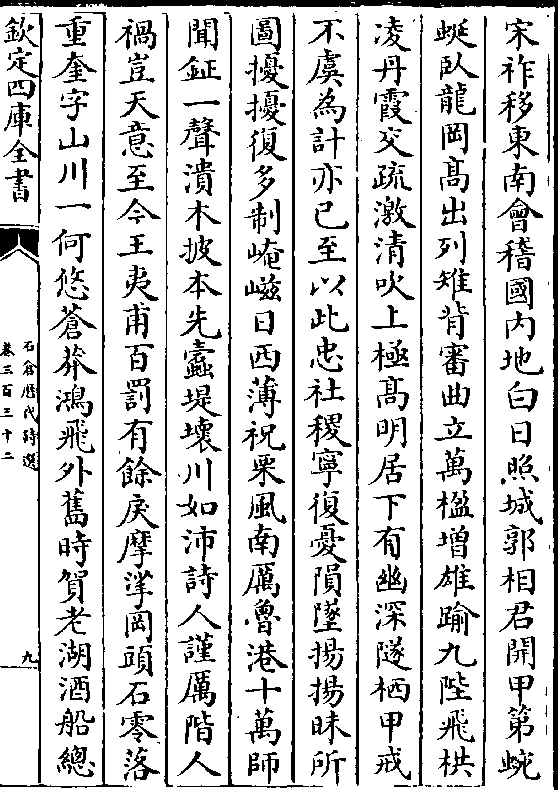 宋祚移東南會稽國内地白日照城郭相君開甲第蜿
蜒臥龍岡髙出列雉背審曲立萬楹増雄踰九陛飛栱
凌丹霞交疏激清吹上極髙明居下有幽深隧栖甲戒
不虞為計亦已至以此忠社稷寧復憂隕墜揚揚昧所
圖擾擾復多制崦嵫日西薄祝栗風南厲魯港十萬師
聞鉦一聲潰木披本先蠧堤壊川如沛詩人謹厲階人
禍豈天意至今王夷甫百罰有餘戾摩挲岡頭石零落
重奎字山川一何悠蒼莽鴻飛外舊時賀老湖酒船總
欽定四庫全書
石倉歴代詩選
卷三百三十二
九